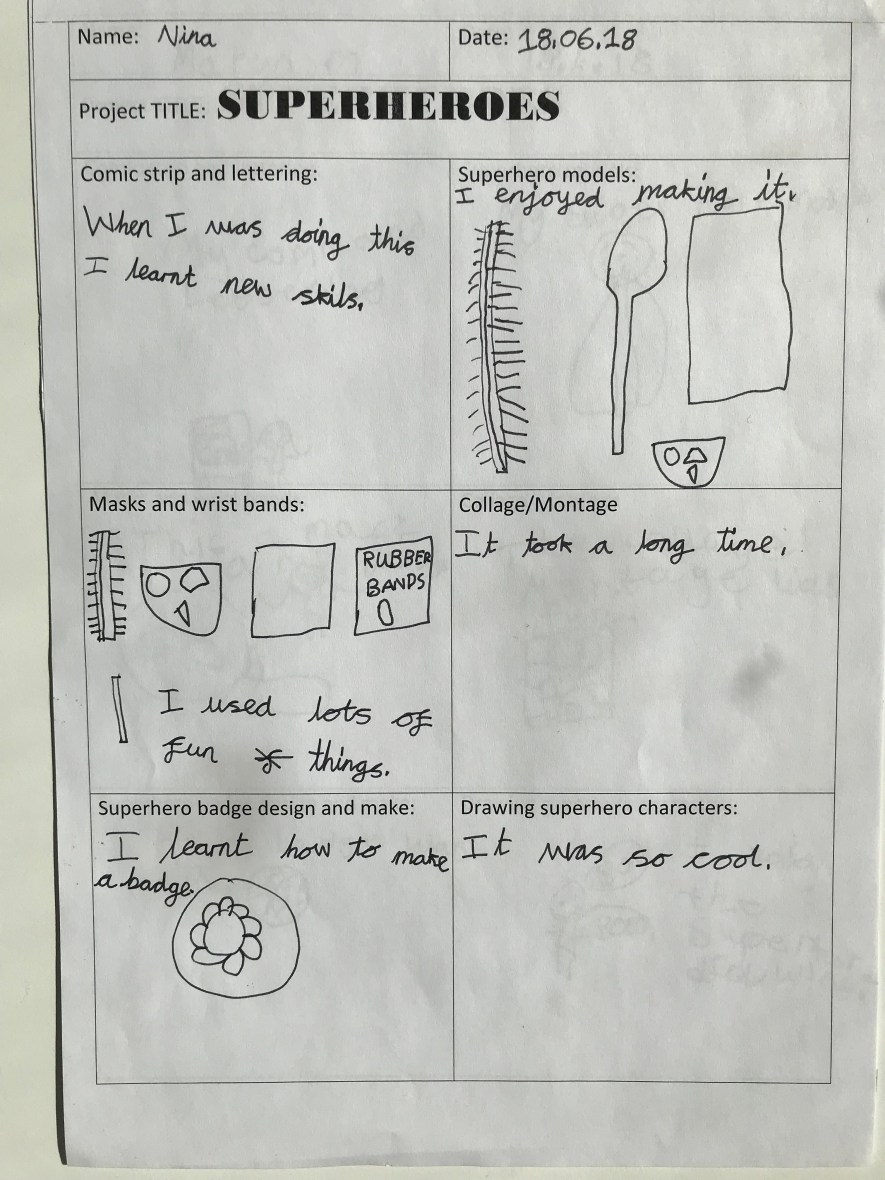 Name: Nina
Date: 18.06.18
Project TITLE: SUPERHEROES
Comic strip and lettering:
When I was doing this
I learnt new skils.
Superhero models:
I enjoyed making it.
Masks and wrist bands:
RUBBER
BANDS
I used lots of
fun things.
Collage/Montage
It took a long time.
Superhero badge design and make:
I learnt how to make
a badge.
Drawing superhero characters:
It was so cool.